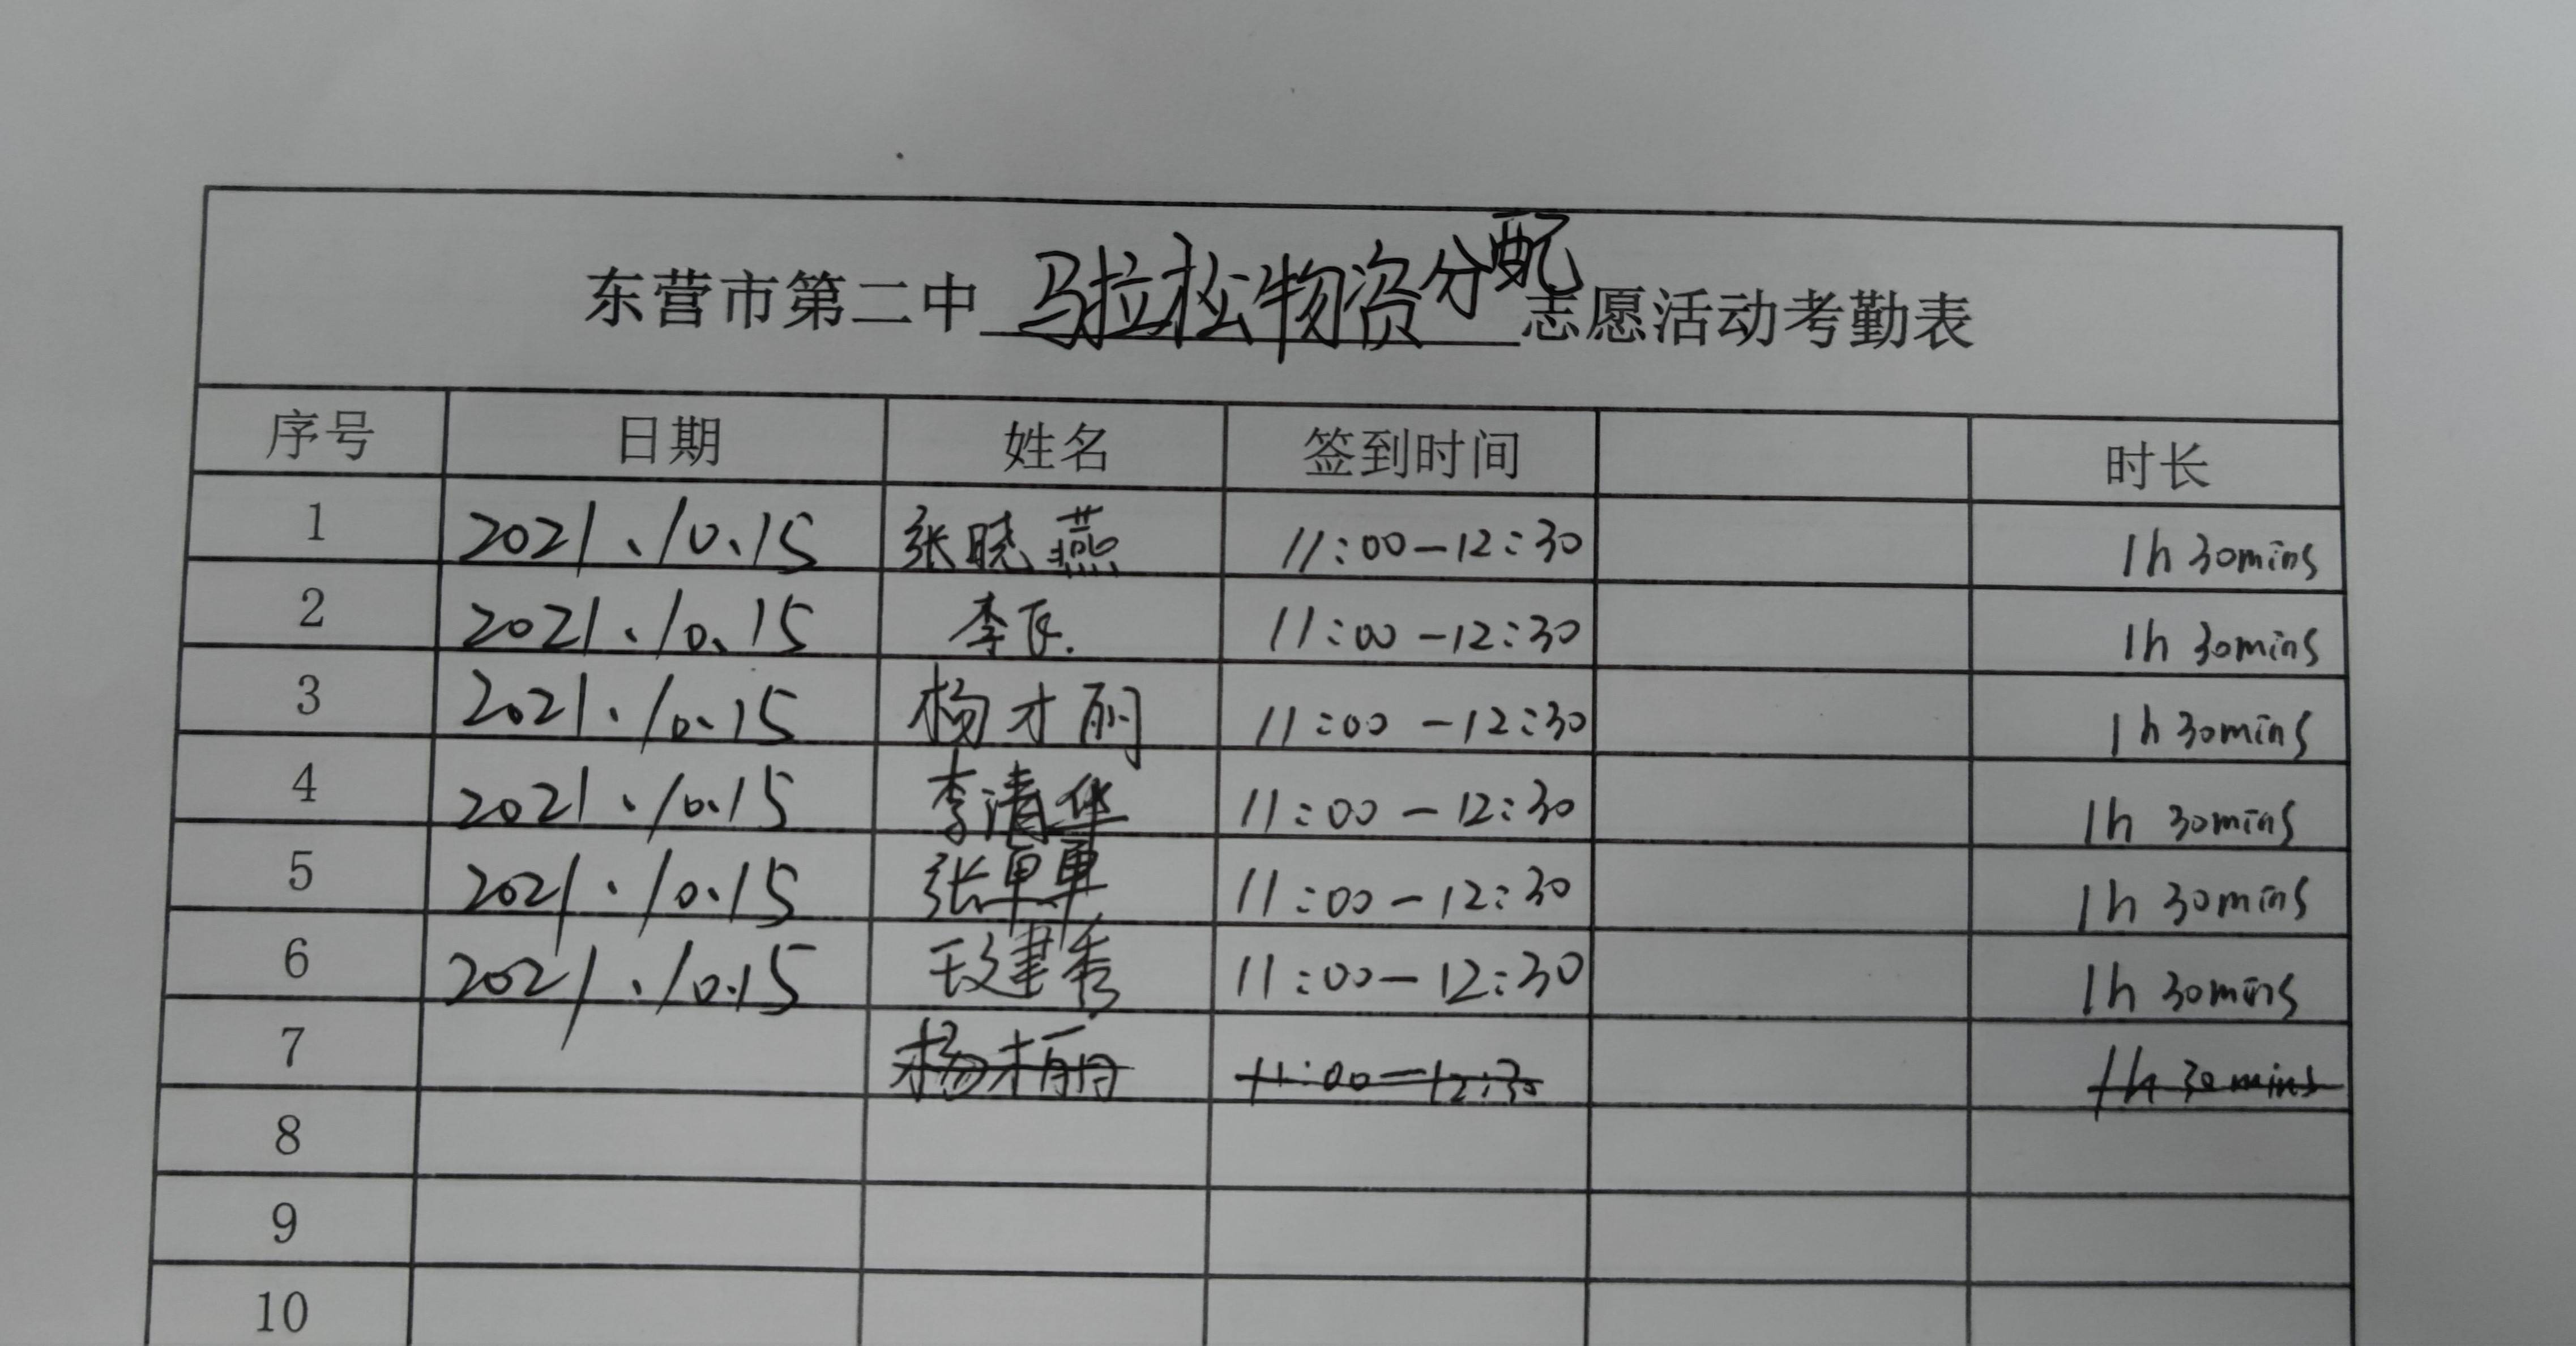 东营市第二中马拉松物资分配志愿活动考勤表
序号 日期 姓名 签到时间 时长
1 2021.10.15 张晓燕 11:00-12:30 1h 30mins
2 2021.10.15 李 11:00-12:30 1h 30mins
3 2021.10.15 杨才丽 11:00-12:30 1h 30mins
4 2021.10.15 李清华 11:00-12:30 1h 30mins
5 2021.10.15 张 11:00-12:30 1h 30mins
6 2021.10.15 建秀 11:00-12:30 1h 30mins
7 杨才丽 11:00-12:30 1h 30mins
8
9
10